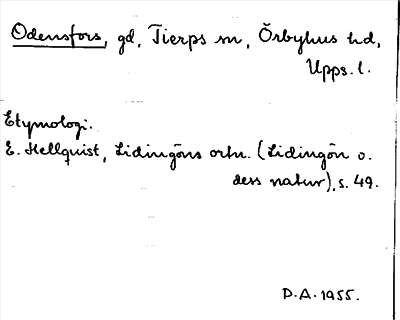 Odensfors, gd, Tierps sn, Örbyhus hd,
Upps. l.
Etymologi.
E. Hellquist, Lidingöns ortn. (Lidingön o.
dess natur), s. 49.
D.A. 1955.